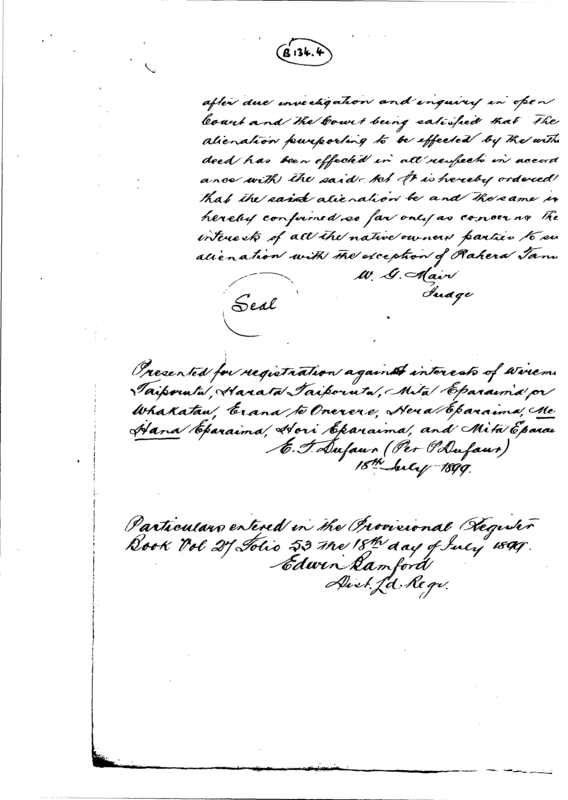 B 134.4
after due investigation and inquiry in open
Court and the Court being satisfied that the
alienation purporting to be effected by the with
deed has been effected in all respects in accord
ance with the said Act It is hereby ordered
that the said alienation be and the same is
hereby confirmed so far only as concerns the
interests of all the native owners parties to su
alienation with the exception of Rahera Tani
W. G. Mair
Judge
Seal
Presented for registration against interests of Wirem
Taiporutu, Harata Taiporutu, Mita Eparaima or
Whakatau, Erana te Onerere, Hera Eparaima, Me
Hana Eparaima, Hori Eparaima, and Mita Eparai
E. T. Dufaur (Per P Dufaur)
18th July 1899.
Particulars entered in the Provisional Register
Book Vol 27 Folio 53 the 18th day of July 1899.
Edwin Bamford
Dist. Ld. Regr.